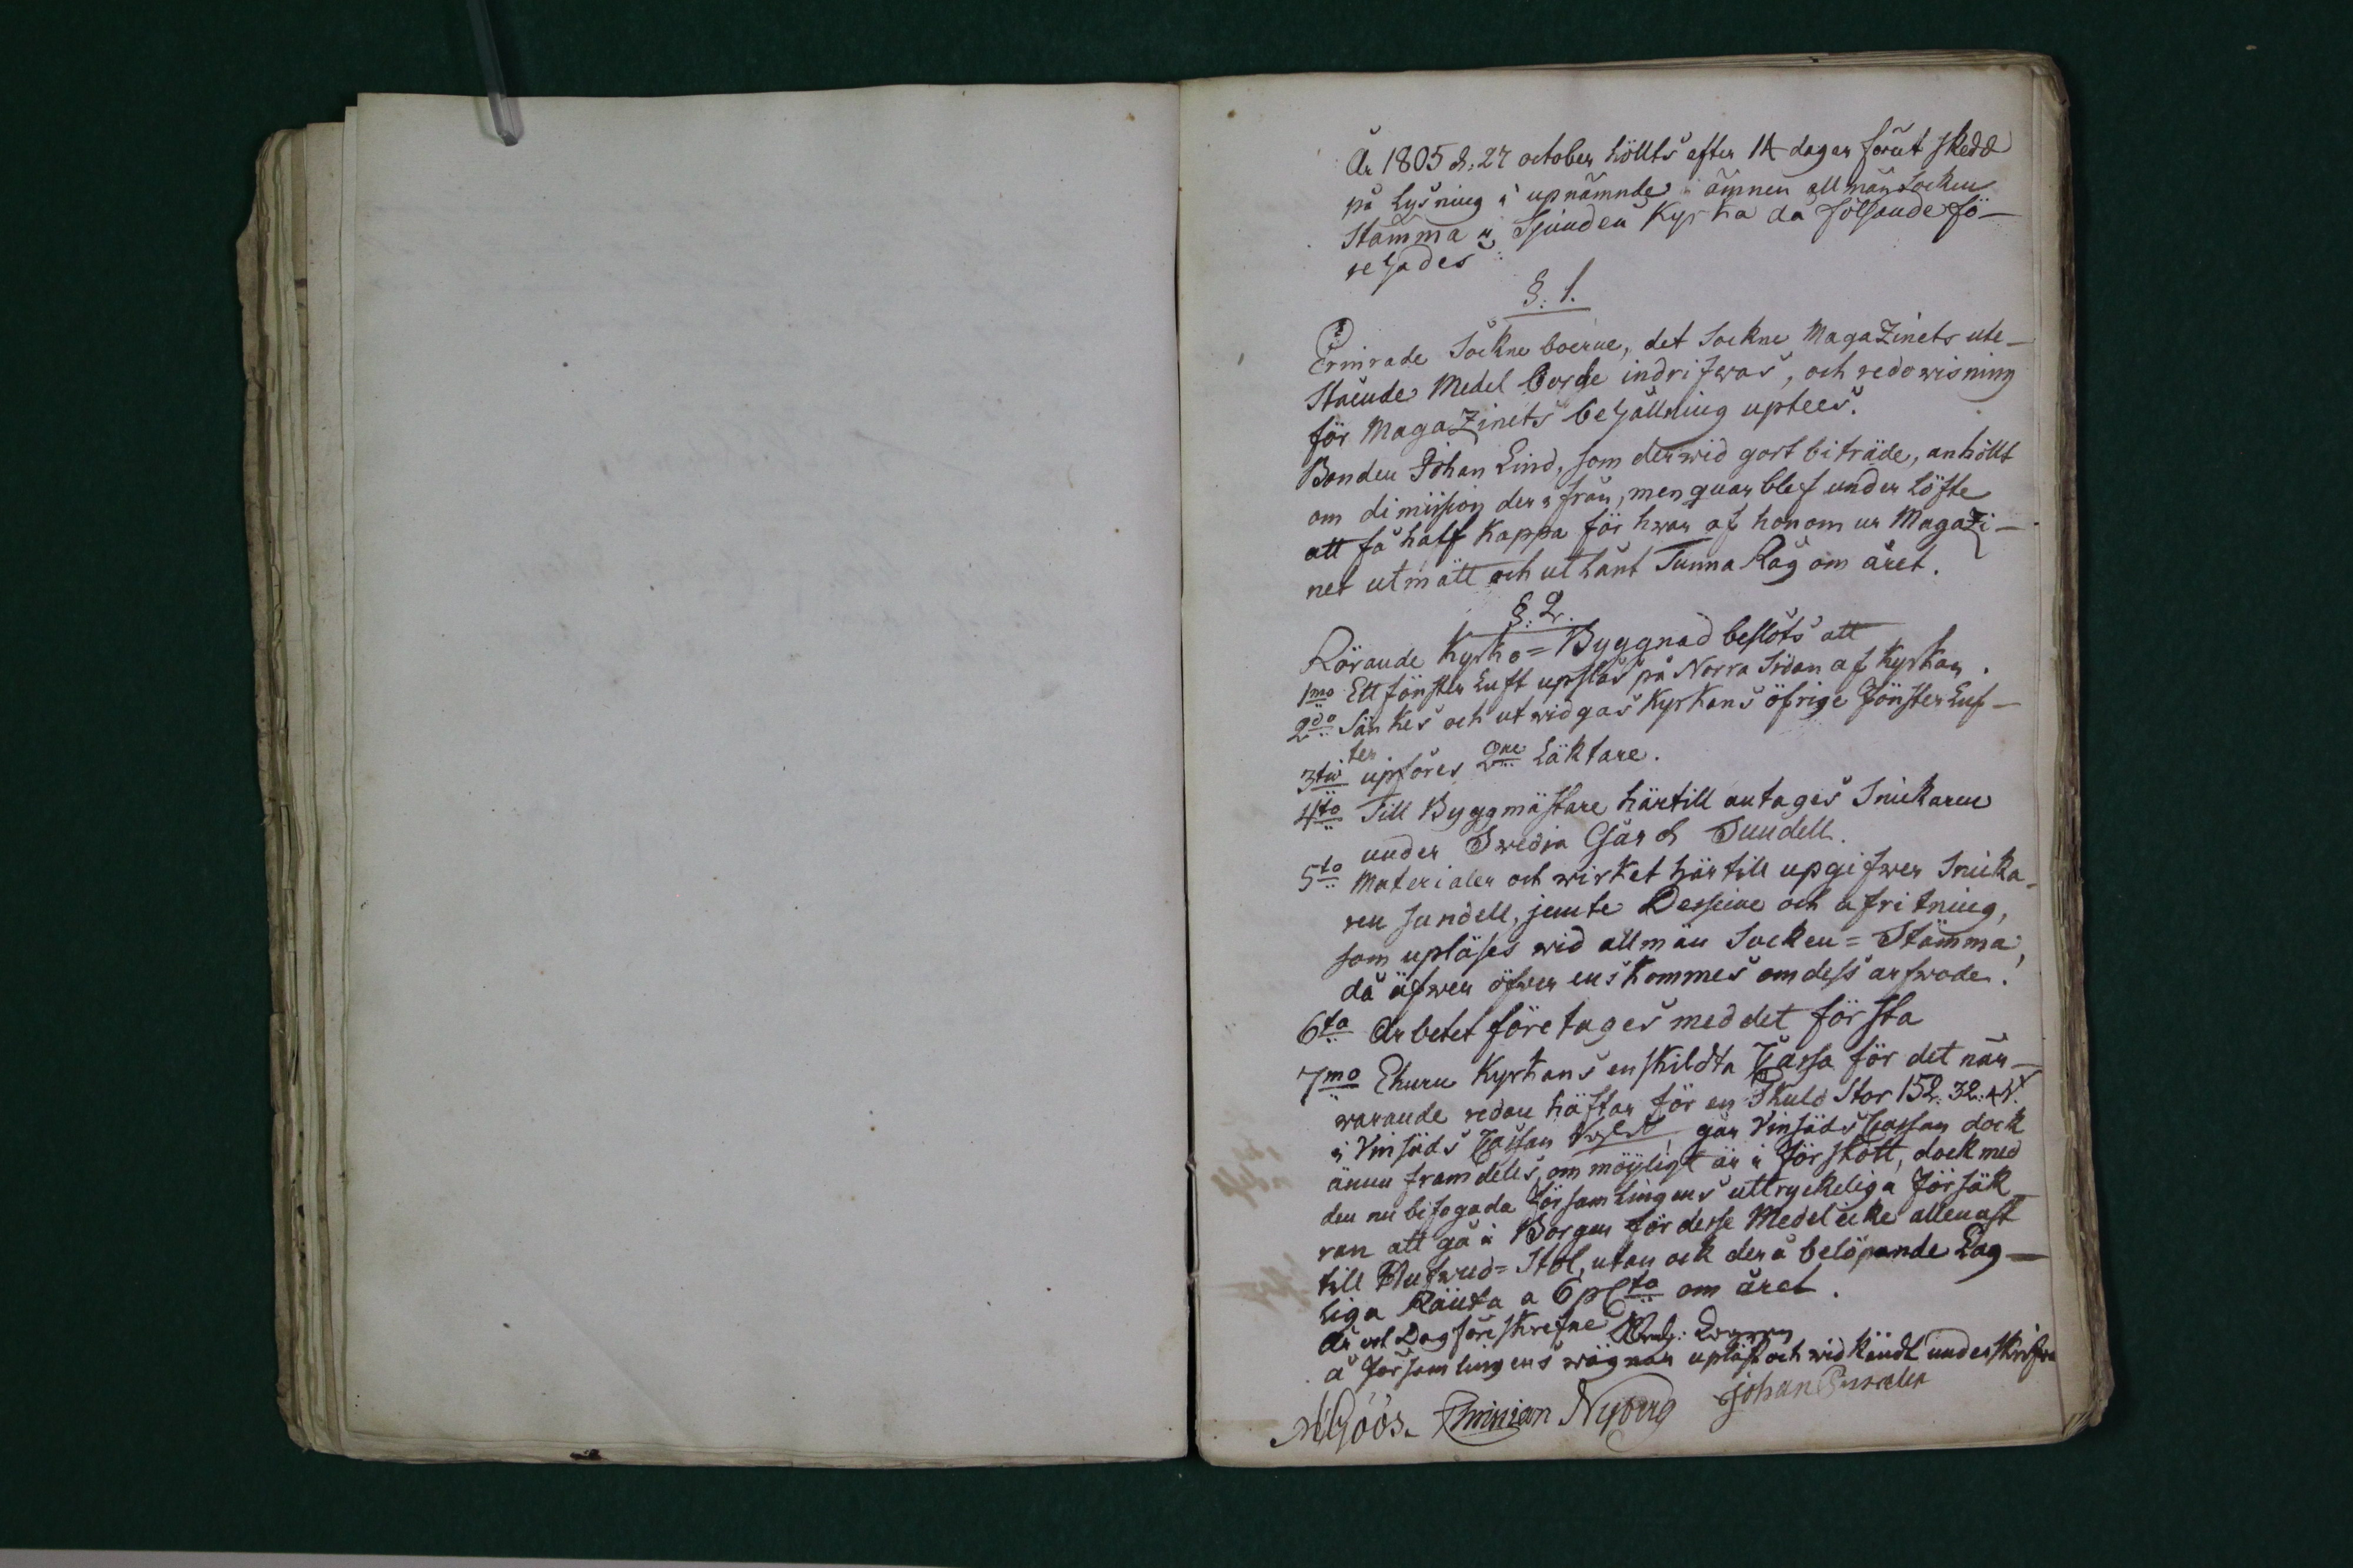 År 1805 d. 27 october höllts efter 14 dagar förut skedd
på Lysning i upnämnde ämnen allmän Socken
Stämma i Sjundeå Kyrka då följande fö-
rehades:
§. 1.
Ermrade Sockneboerne, det Sockne Magazinets ute-
stående Medel borde indrifwas, och redowisning
för Magazinets behållning uptees.
Bonden Johan Lind, som derwid gort biträde, anhöllt
om dimission der ifrån, men quarblef under Löfte
att få half Kappa för hwar af honom ur Magazi-
net utmätt och utLånt Tunna Råg om året.
§. 2.
Rörande Kyrko=Byggnad beslöts att
1mo Ett fönster Luft upslås på Norra Sidan af Kyrkan.
2do Sänkes och utwidgas Kyrkans öfrige Fönster Luf-
ter
3tio upföres 2ne Läktare.
4to Till Byggmästare härtill antages Snickaren
under Swidja Gård Sundell.
5to Materialer och wirket härtill upgifwer Snicka-
ren Sundell, jemte Desseine och afritning,
som upläses wid allmän Socken=Stämma,
då äfwen öfwerenskommes om dess arfwode.
6to Arbetet företages med det första
7mo Ehuru Kyrkans enskildta Cassa för det när-
warande redan häftar för en Skuld Stor 152. 32.
i Vinsäds Cassan går Vinsäds Cassan dock
ännu framdeles, om möyligt är i Förskott, dock med
den nu bifogada Församlingens uttryckeliga Försäk
ran att gå i Borgen för desse Medel icke allenast
till Hufwud=Stol, utan ock derå belöpande Lag-
liga Ränta a 6 pCto om året.
År och Dag föreskrefne
å Församlingens wägnar upläst och widkändt underskrifwa
Göös. Christian Nyberg Johan